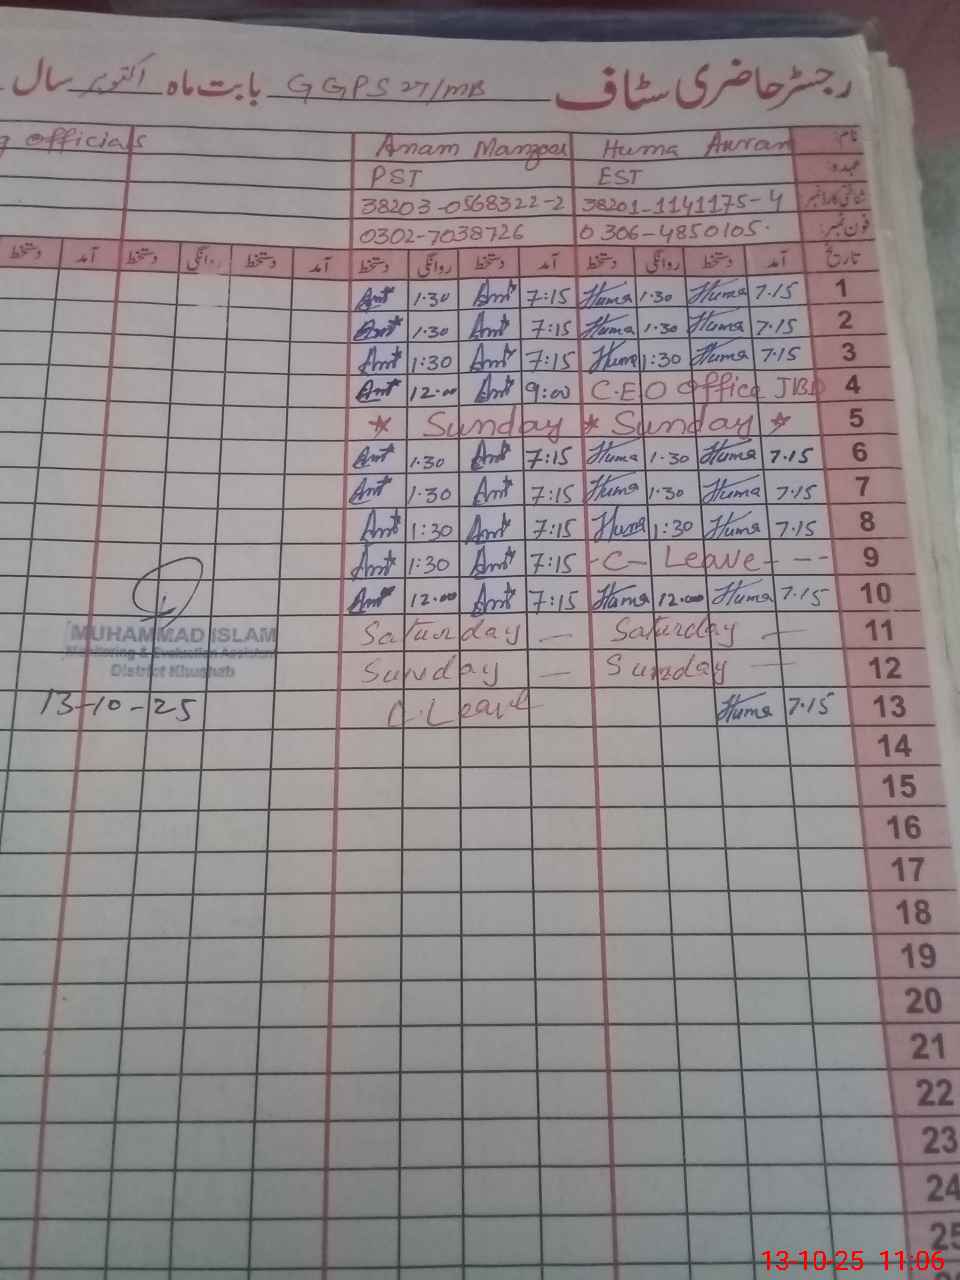 رجسٹر حاضری سٹاف GGPS 27/MB بابت ماہ اکتوبر سال
نام: Huma Anman Anam Manzoor officials
عہدہ: EST PST
شناختی کارڈ نمبر 38201-1141175-4 38203-0568322-2
فون نمبر: 0306-4850105. 0302-7038726
تاریخ آمد دستخط روانگی دستخط آمد دستخط روانگی دستخط آمد دستخط روانگی دستخط آمد دستخط
1 7.15 Huma 1.30 Huma 7:15 Am 1.30 Am
2 7.15 Huma 1.30 Huma 7:15 Am 1.30 Am
3 7.15 Huma 1:30 Huma 7:15 Am 1:30 Am
4 C.E.O office JBD 9:00 Am 12.00 Am
5 * Sunday * Sunday *
6 7.15 Huma 1.30 Huma 7:15 Am 1.30 Am
7 7.15 Huma 1.30 Huma 7:15 Am 1.30 Am
8 7.15 Huma 1:30 Huma 7:15 Am 1:30 Am
9 -C- Leave - -- 7:15 Am 1:30 Am
10 7.15 Huma 12.00 Huma 7:15 Am 12.00 Am
11 Saturday — Saturday —
MUHAMMAD ISLAM
Monitoring & Evaluation Assistant
12 Sunday — Sunday —
District Khushab
13 7.15 Huma C.Leave 13-10-25
14
15
16
17
18
19
20
21
22
23
24
25
13-10-25 11:06